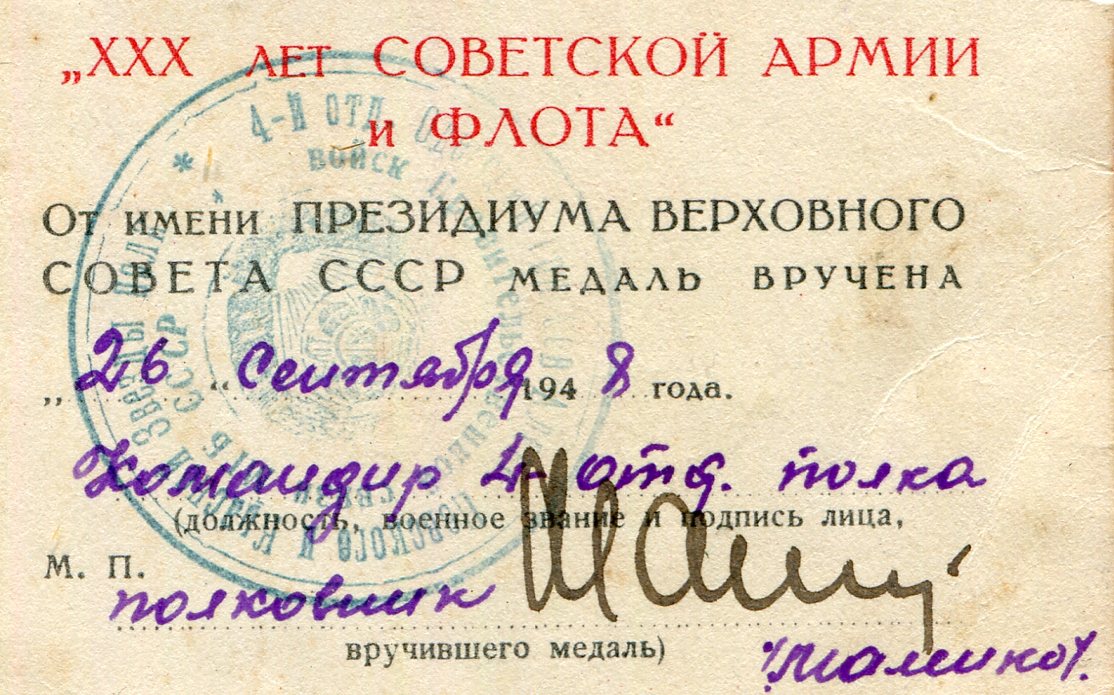 „XXX ЛЕТ СОВЕТСКОЙ АРМИИ
и ФЛОТА“
От имени ПРЕЗИДИУМА ВЕРХОВНОГО
СОВЕТА СССР МЕДАЛЬ ВРУЧЕНА
„26“ Сентября 1948 года.
Командир 4 отд. полка
(должность, военное звание и подпись лица,
М. П.
полковник
вручившего медаль)
4-Й ОТД.
ВОЙСК
СССР